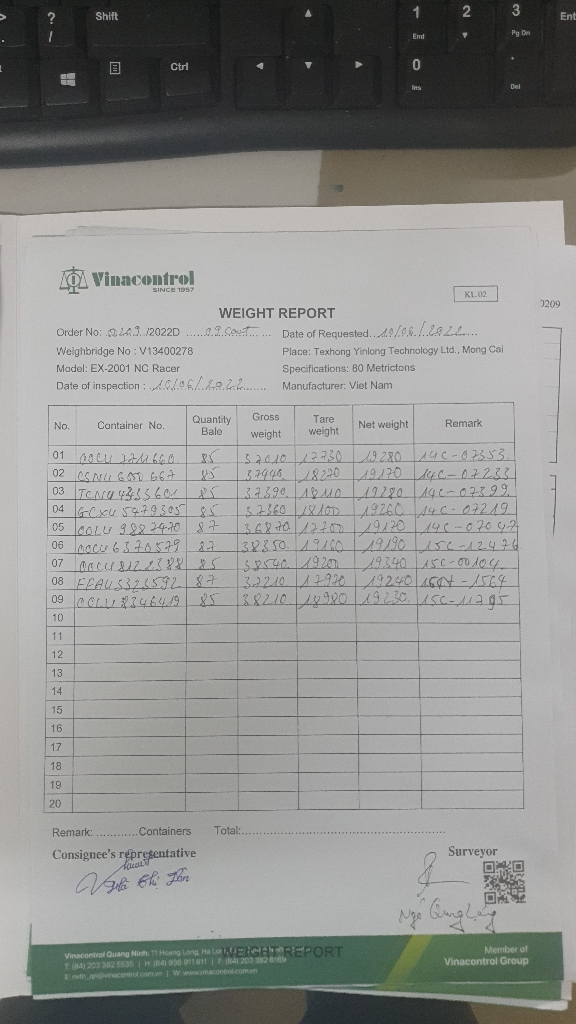 ? Shift 1 2 3 Ent
/ End Pg Dn
Ctrl 0 .
Ins Del
Vinacontrol
SINCE 1957
KL.02
0209
WEIGHT REPORT
Order No: 0209 /2022D 09 Cont Date of Requested 10/06/2022
Weighbridge No : V13400278 Place: Texhong Yinlong Technology Ltd., Mong Cai
Model: EX-2001 NC Racer Specifications: 80 Metrictons
Date of inspection : 10/06/2022 Manufacturer: Viet Nam
No. Container No. Quantity Bale Gross weight Tare weight Net weight Remark
01 85 37010 17730 19280 14C-07353
02 CSNU 650 667 85 37440 18270 19170 14C-07233
03 85 37390 18110 19280 14C-07399
04 GCXU 5479305 85 37360 18100 19260 14C-07219
05 87 36870 17700 19170 14C-07047
06 OOCU 6370579 87 38350 19160 19190 15C-12476
07 85 38540 19200 19340 15C-00104
08 87 37210 17970 19240 -1564
09 85 38210 18980 19230 15C-11795
10
11
12
13
14
15
16
17
18
19
20
Remark: ............Containers Total:
Consignee's representative Surveyor
Ngô Quang
WEIGHT REPORT
Vinacontrol Quang Ninh: 11 Hoang Long, Ha Lo
Member of
Vinacontrol Group